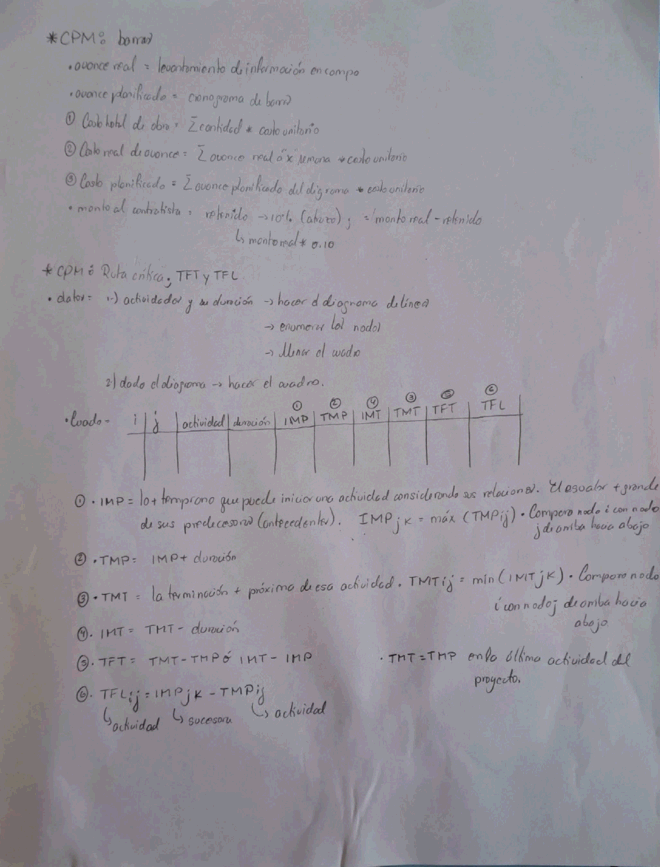 *CPM: barras
• avance real = levantamiento de información en campo
• avance planificado = cronograma de barras
① Costo total de obra = Σ cantidad * costo unitario
② Costo real de avance = Σ avance real á x semana * costo unitario
③ Costo planificado = Σ avance planificado del diagrama * costo unitario
• monto al contratista = retenido → 10% (abono) ; = monto real - retenido
↳ monto real * 0.10
*CPM: Ruta crítica, TFT y TFL
• datos = 1-) actividades y su duración → hacer el diagrama de líneas
→ enumerar los nodos
→ llenar el cuadro
2) dado el diagrama → hacer el cuadro.
① ② ④ ③ ⑤ ⑥
• Cuadro - i j actividad duración IMP TMP IMT TMT TFT TFL
① • IMP = lo + temprano que puede iniciar una actividad considerando sus relaciones. El escoger + grande
de sus predecesores (antecedentes). IMP jk = máx (TMP ij) • Compara nodo i con nodo
j de arriba hacia abajo
② • TMP = IMP + duración
③ • TMT = la terminación + próxima de esa actividad. TMT ij = min (IMT jk) • Comparo nodo
i con nodo j de arriba hacia
abajo
④ • IMT = TMT - duración
⑤ • TFT = TMT - TMP ó IMT - IMP • TMT = TMP en la última actividad del
proyecto.
⑥ • TFL ij = IMP jk - TMP ij
↳ actividad ↳ sucesora ↳ actividad